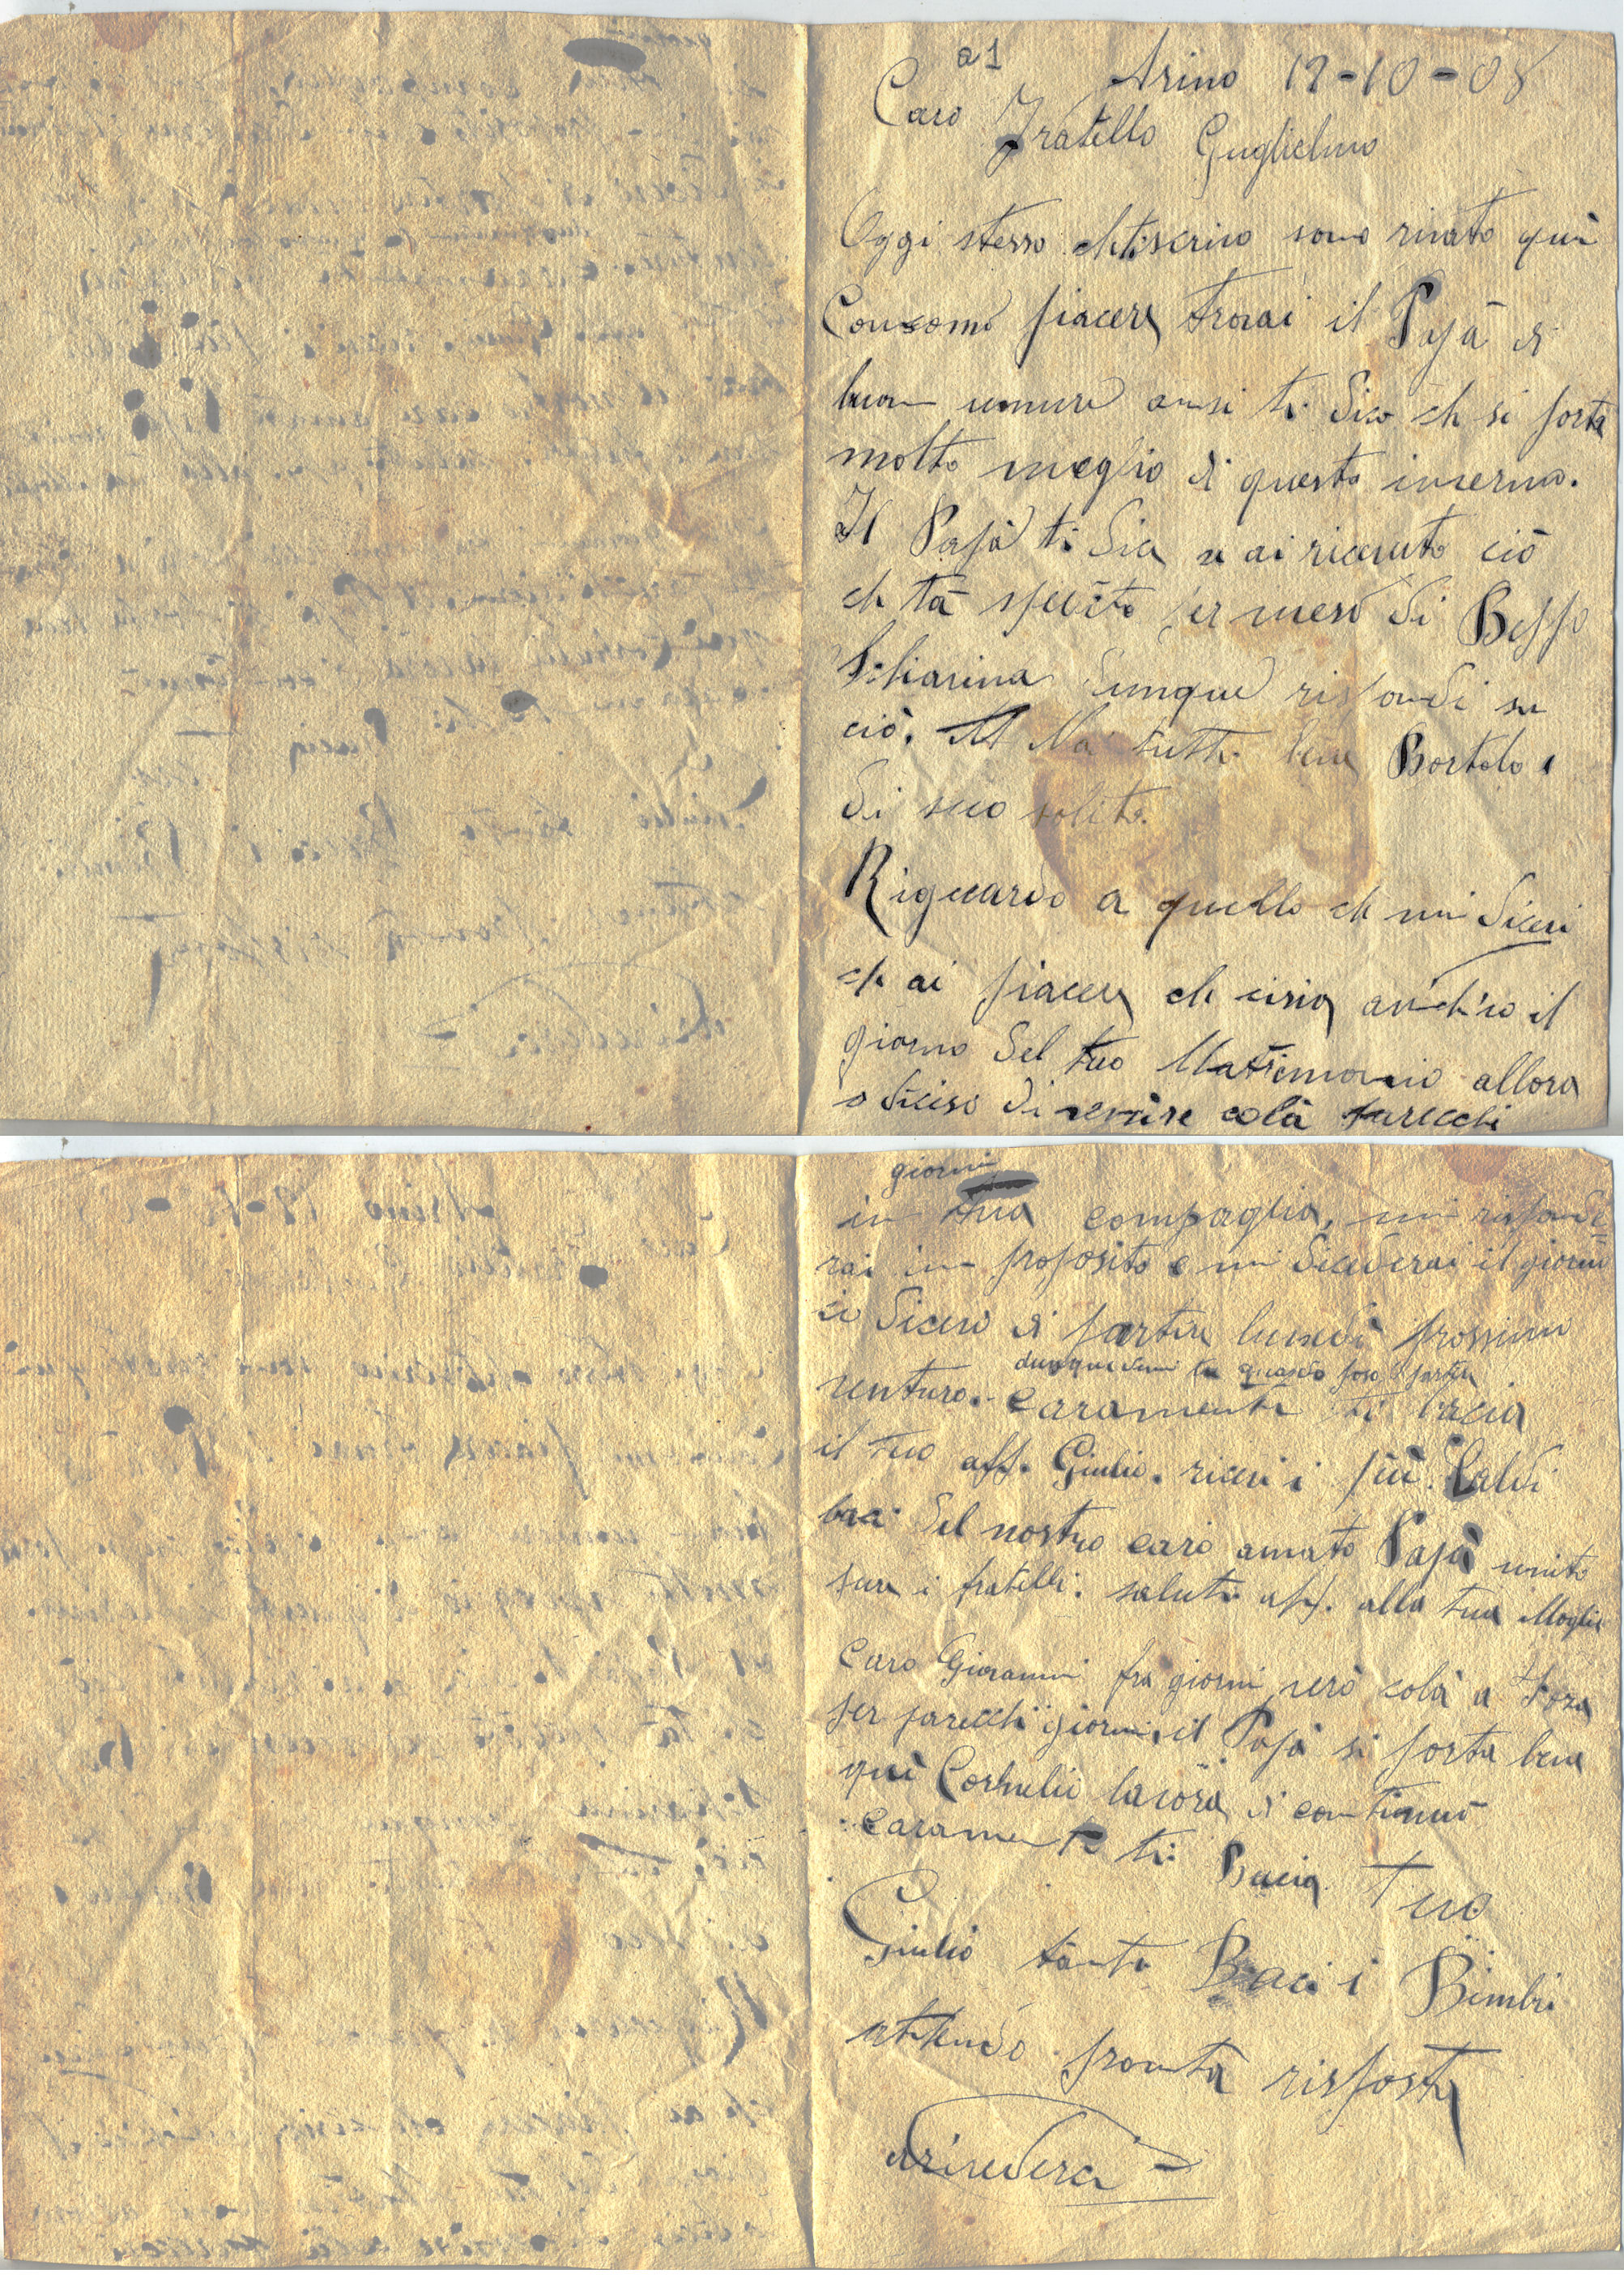 a1
Arino 12-10-08
Caro Fratello Guglielmo
Oggi stesso chetiscrivo sono rivato quì
Consomo piacere trovai il Papà di
buon umure ansi ti dico che si porta
molto meglio di questo inverno.
Il Papà ti dice se ai ricevuto ciò
che tà spedito per meso di Beppo
Schiarina dunque rispondi su
ciò. Va tutti bene Bortolo e
di seco solito.
Riguardo a quello che mi dicevi
che ai piacere che cisia anch'io il
giorno del tuo Matrimonio allora
o deciso di venire colà parecchi
giorni
in tua compaglia, mi risponde
rai in proposito e mi deciderai il giorno
io deciso di partire lunedì prossimo
dunque dimi tu quando poso partire
venturo. Caramente ti bacia
il tuo aff. Giulio. ricevi i più Caldi
baci del nostro caro amato Papà unito
pure i fratelli. saluti aff. alla tua Moglie
Caro Giovanni fra giorni verò colà a Foza
per parecchi giorni, il Papà si porta bene
quì Cornelio lavora di continuo
caramente ti Bacia Tuo
Giulio tanti Baci i Bimbi
attendo pronta risposta
Arivederci